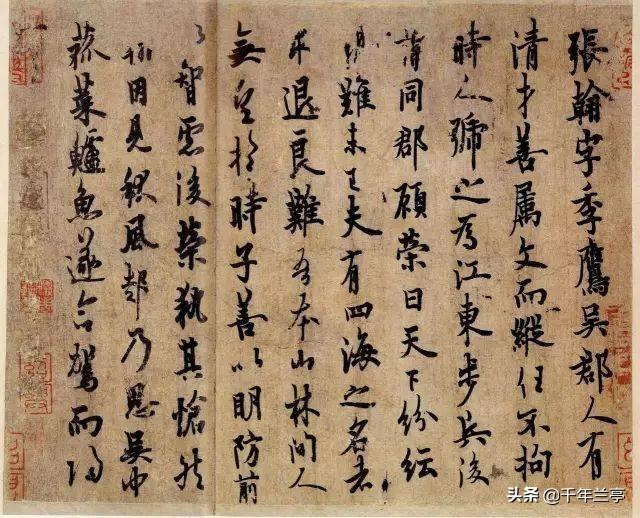 張翰字季鷹吳郡人有
清才善屬文而縱任不拘
時人號之為江東步兵後
謂同郡顧榮曰天下紛紜
難未已夫有四海之名者
求退良難吾本山林間人
無望於時子善以明防前
以智慮後榮執其愴然
翰因見秋風起乃思吳中
菰菜鱸魚遂命駕而歸
头条 @千年兰亭